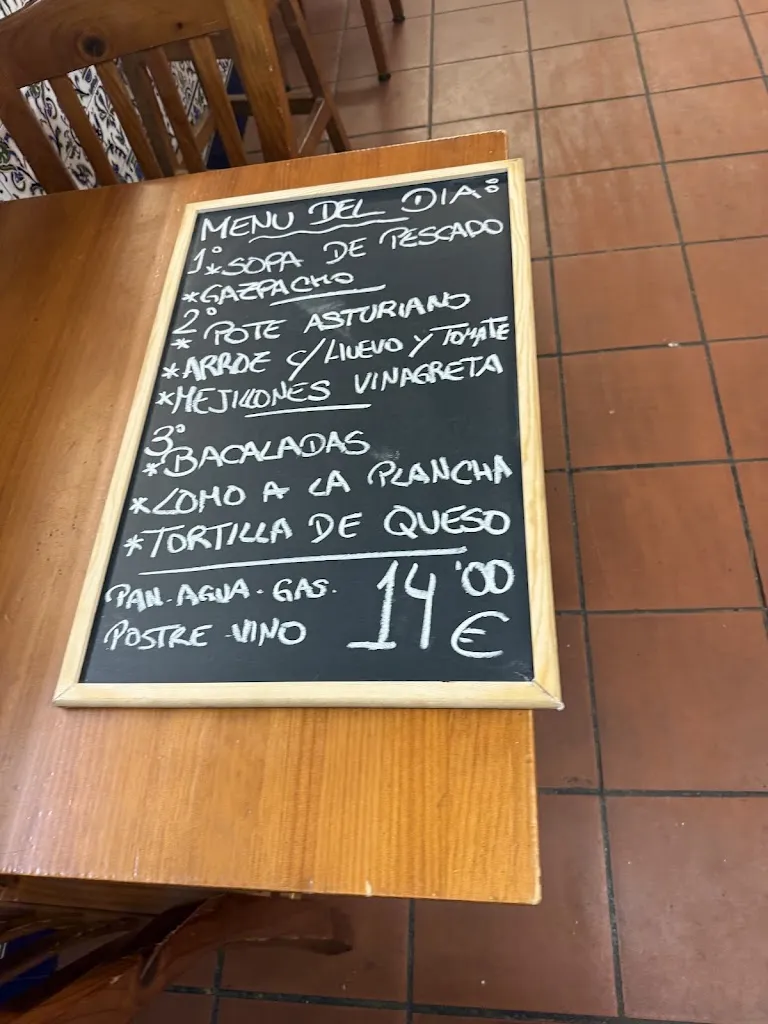 MENU DEL DIA:
1º
*SOPA DE PESCADO
*GAZPACHO
2º
* POTE ASTURIANO
*ARROZ C/HUEVO Y TOMATE
*MEJILLONES VINAGRETA
3º
*BACALADAS
*LOMO A LA PLANCHA
*TORTILLA DE QUESO
PAN-AGUA-GAS.
POSTRE-VINO
14'00
€